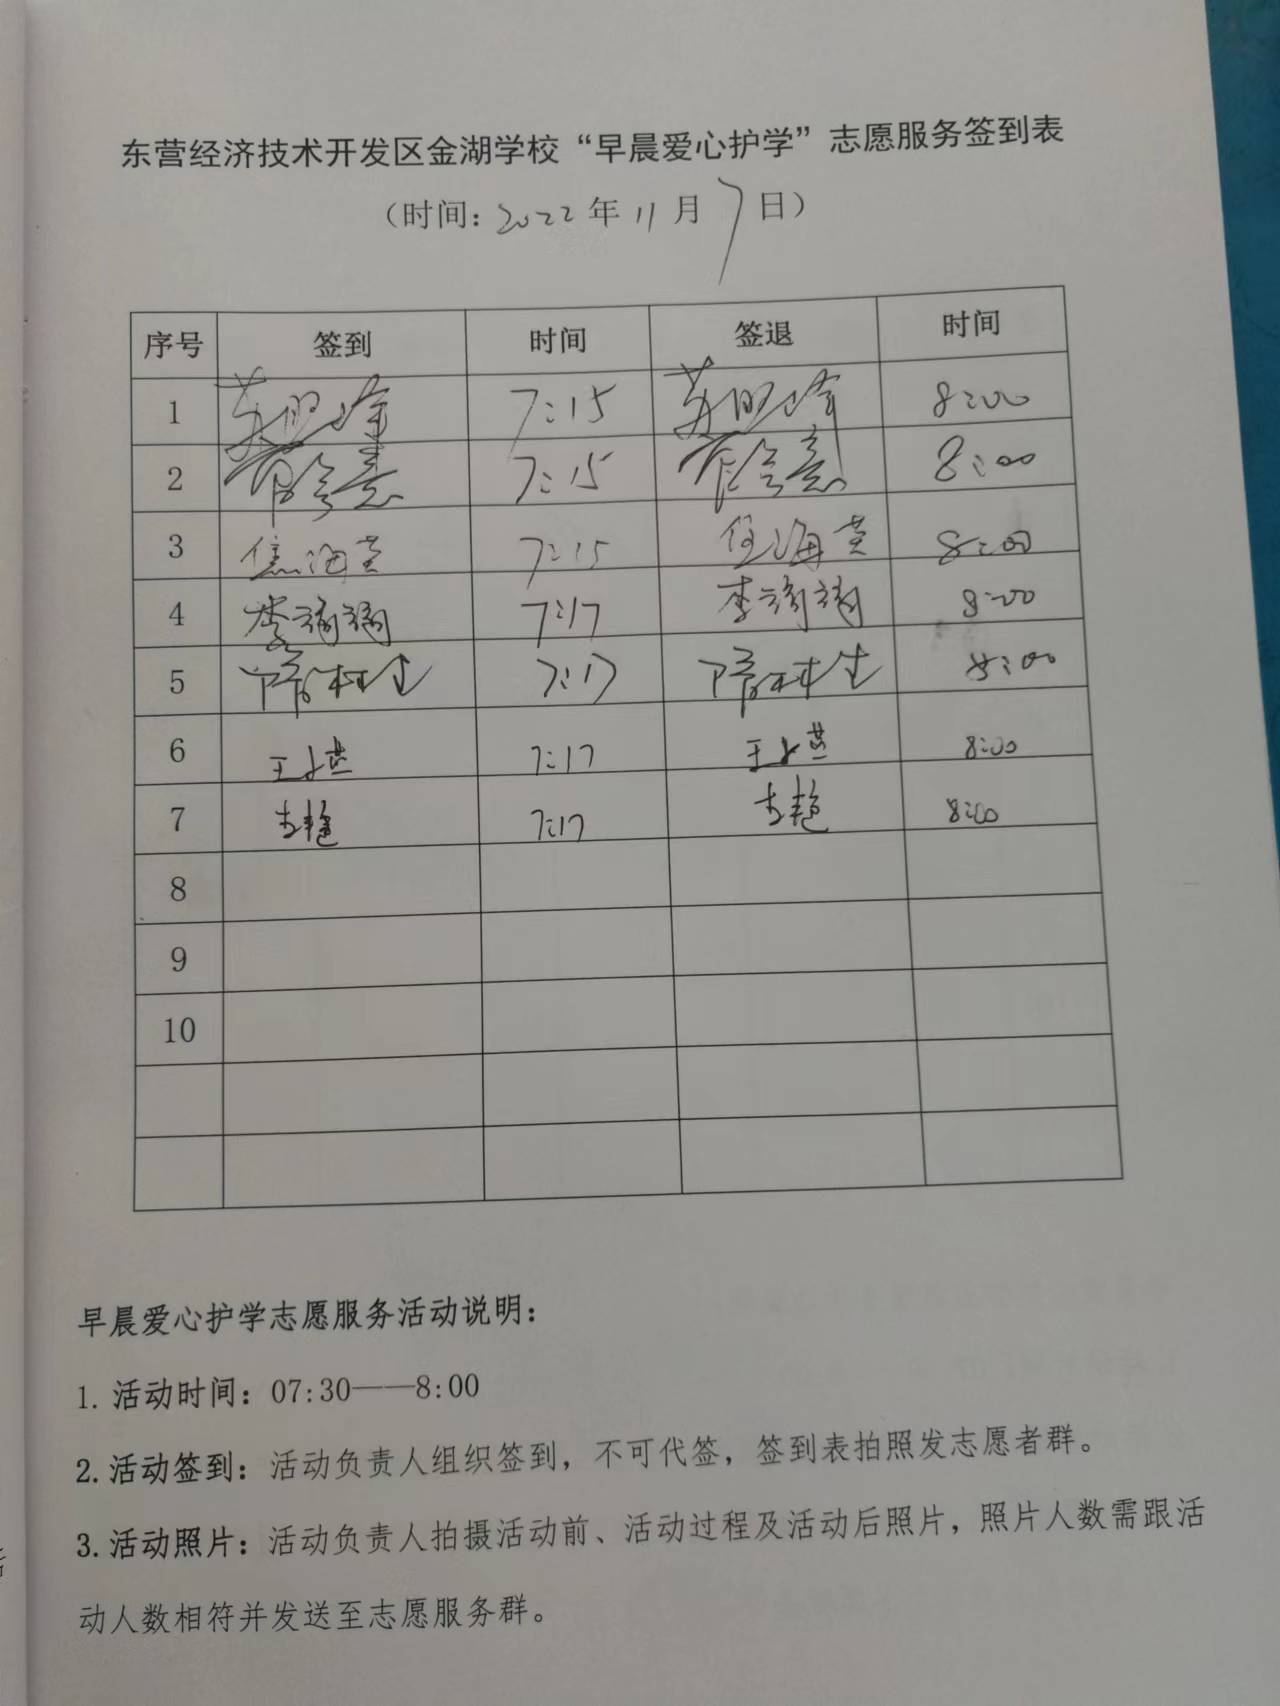 东营经济技术开发区金湖学校“早晨爱心护学”志愿服务签到表
（时间：2022年11月7日）
序号 签到 时间 签退 时间
1 7:15 8:00
2 7:15 8:00
3 7:15 任海英 8:00
4 李 7:17 李 8:00
5 7:17 8:00
6 王 7:17 王 8:00
7 李艳 7:17 李艳 8:00
8
9
10
早晨爱心护学志愿服务活动说明：
1. 活动时间：07:30——8:00
2. 活动签到：活动负责人组织签到，不可代签，签到表拍照发志愿者群。
3. 活动照片：活动负责人拍摄活动前、活动过程及活动后照片，照片人数需跟活
动人数相符并发送至志愿服务群。